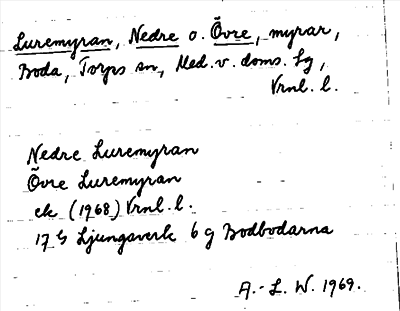 Luremyran, Nedre o. Övre, myrar,
Boda, Torps sn, Med. v. doms. lg,
Vrnl. l.
Nedre Luremyran
Övre Luremyran
ek (1968) Vrnl. l.
17 G Ljungaverk 6 g Bodbodarna
A.-L. W. 1969.